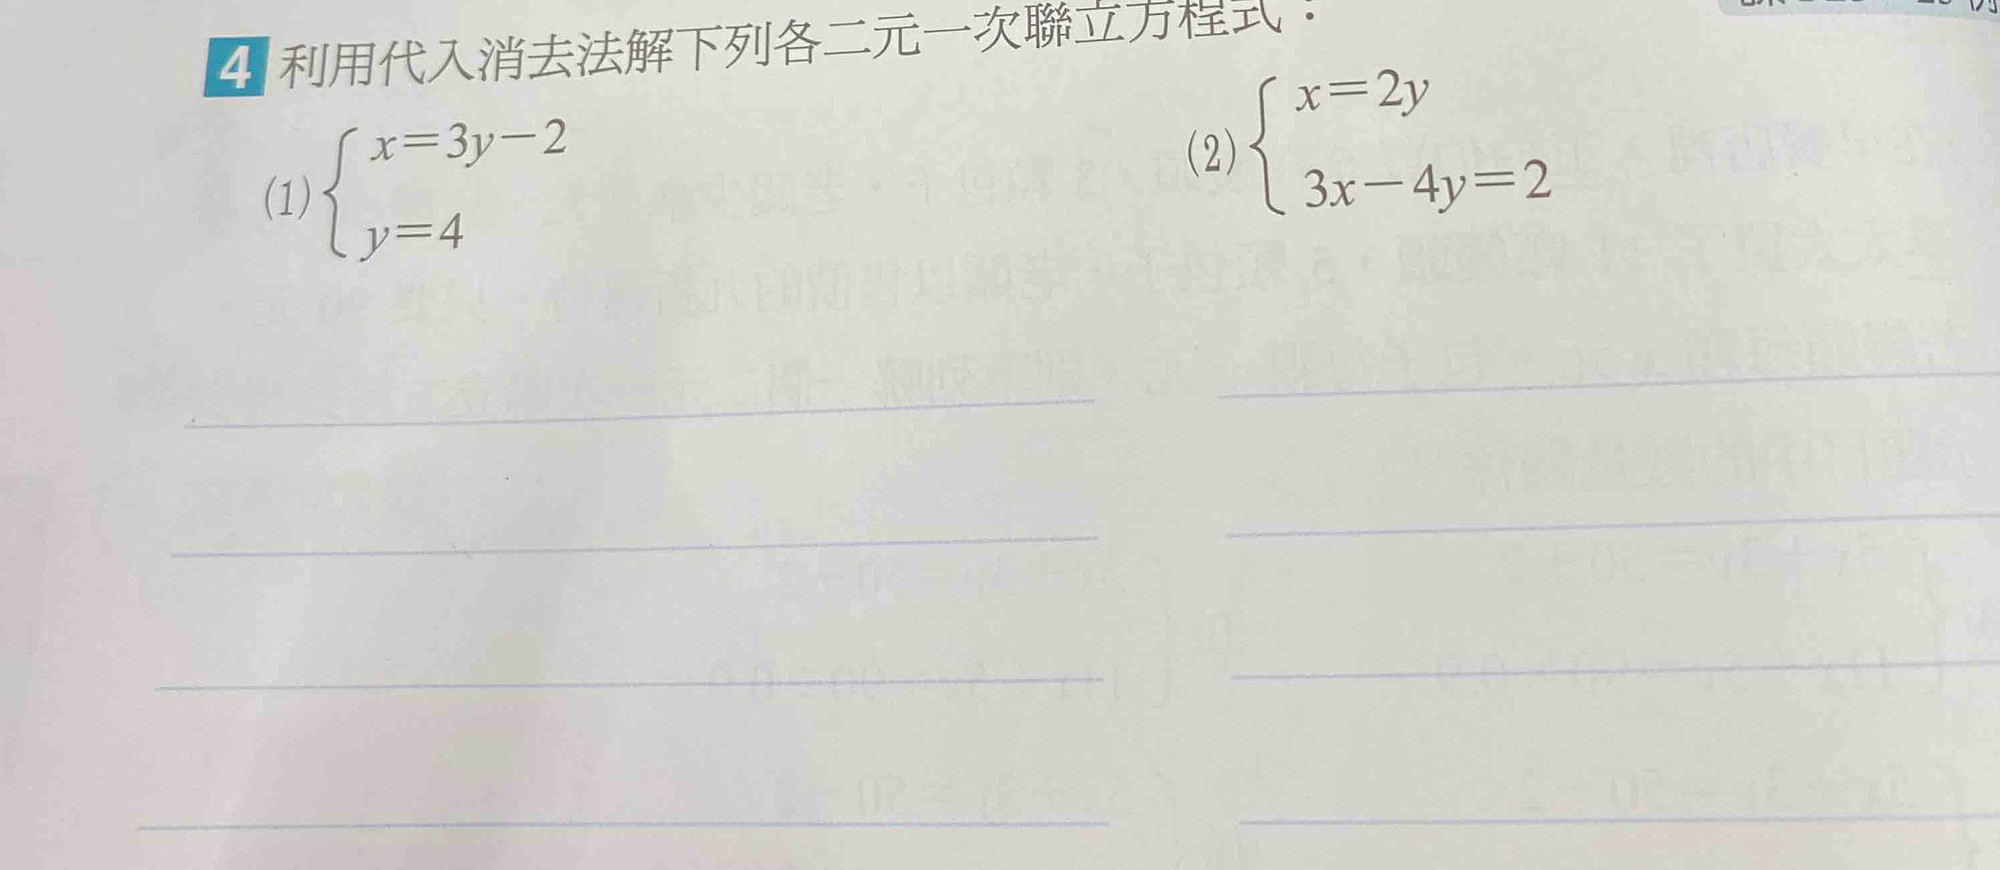 4 利用代入消去法解下列各二元一次聯立方程式：
(1) { x=3y-2
y=4
(2) { x=2y
3x-4y=2